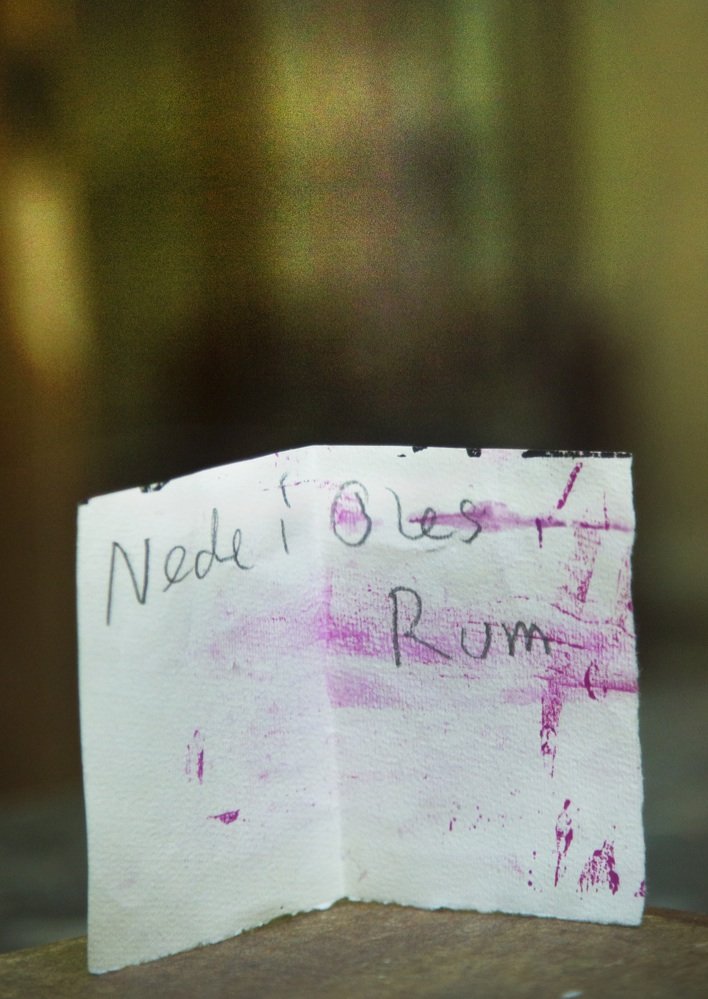 Nede i Oles
Rum